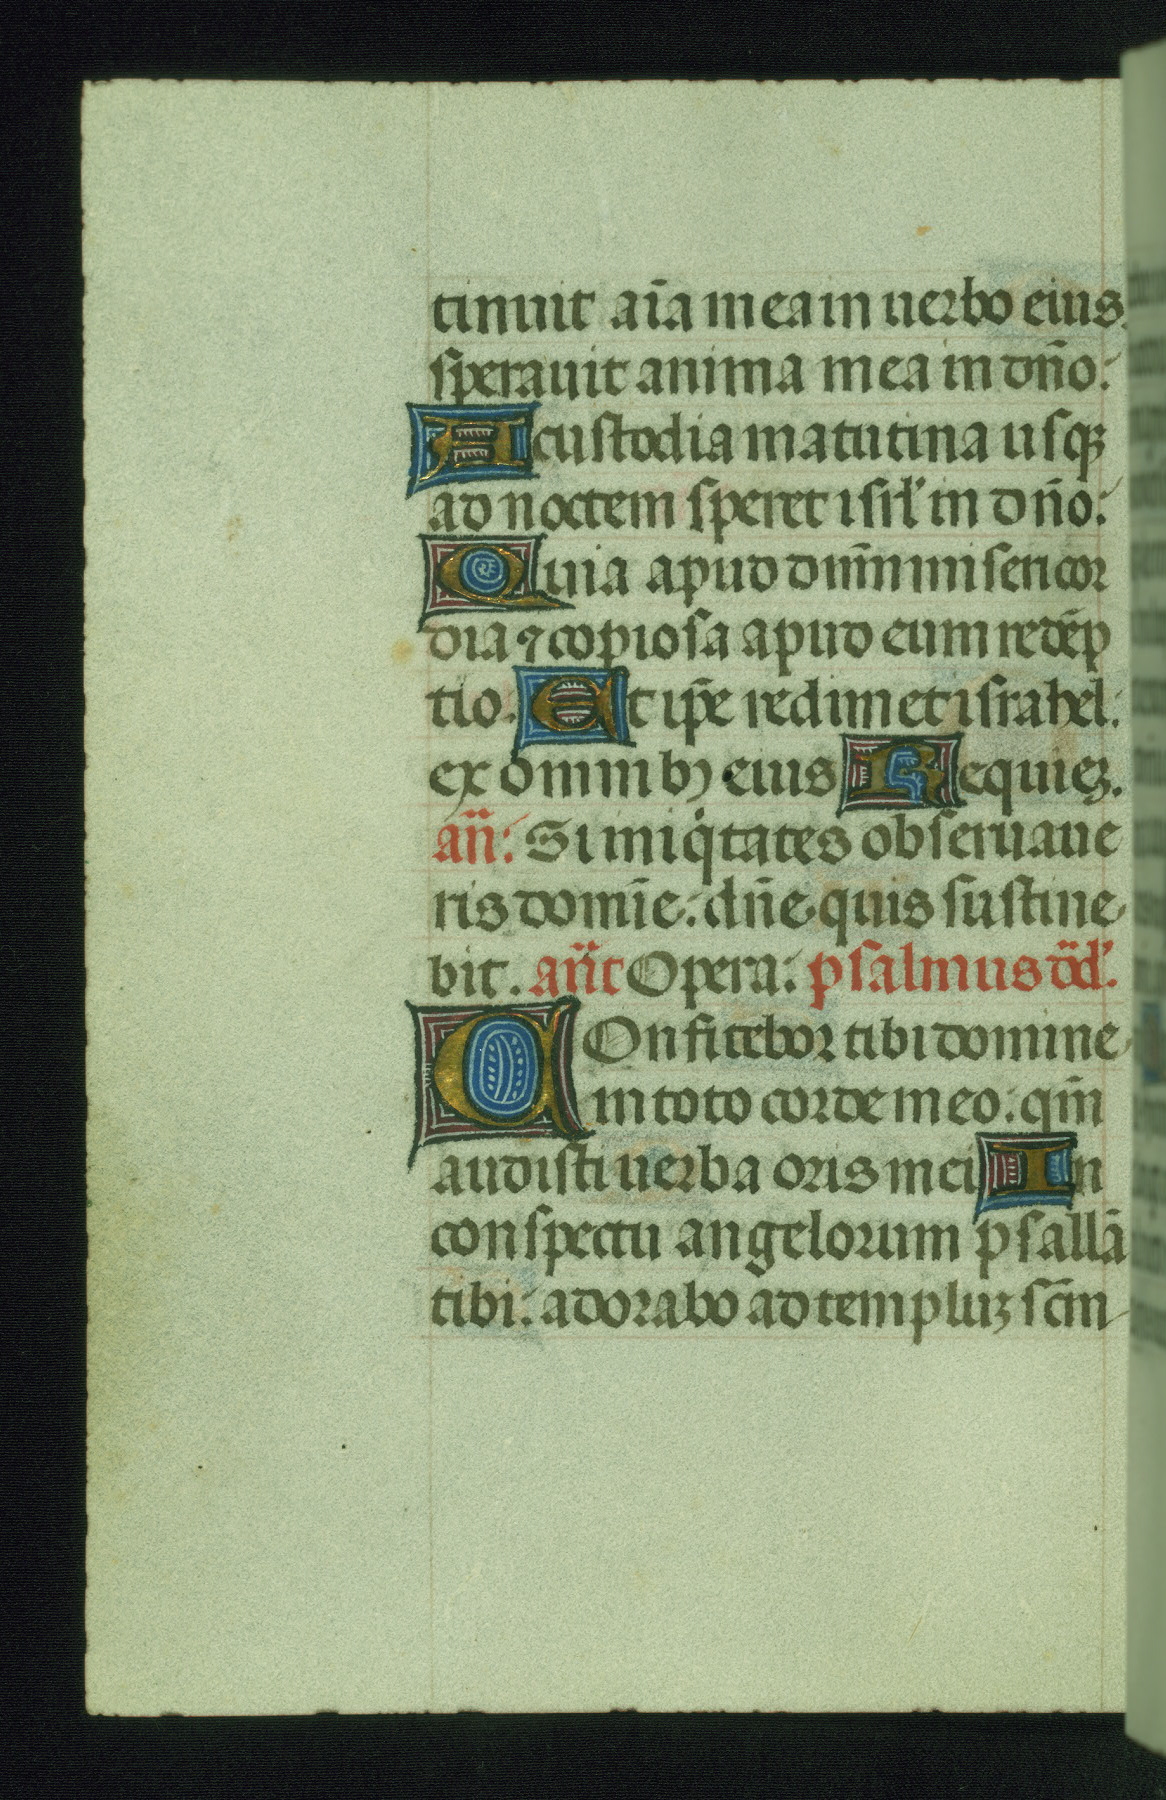 tinuit aīa mea in uerbo eius.
sperauit anima mea in dn̄o:
A custodia matutina usqꝫ
ad noctem speret isrl' in dn̄o:
Quia apud dnm̄ misericor
dia ⁊ copiosa apud eum redēp
tio. Et ip̄e redimet israhel:
ex omnibꝯ eius Requieꝫ.
an̄: Si iniqͥtates obseruaue
ris domīe: dn̄e quis sustine
bit. an̄t Opera: psalmus dd̄'.
COnfitebor tibi domine
in toto corde meo: qm̄
audisti uerba oris mei In
conspectu angelorum psallā
tibi: adorabo ad templuꝫ scm̄